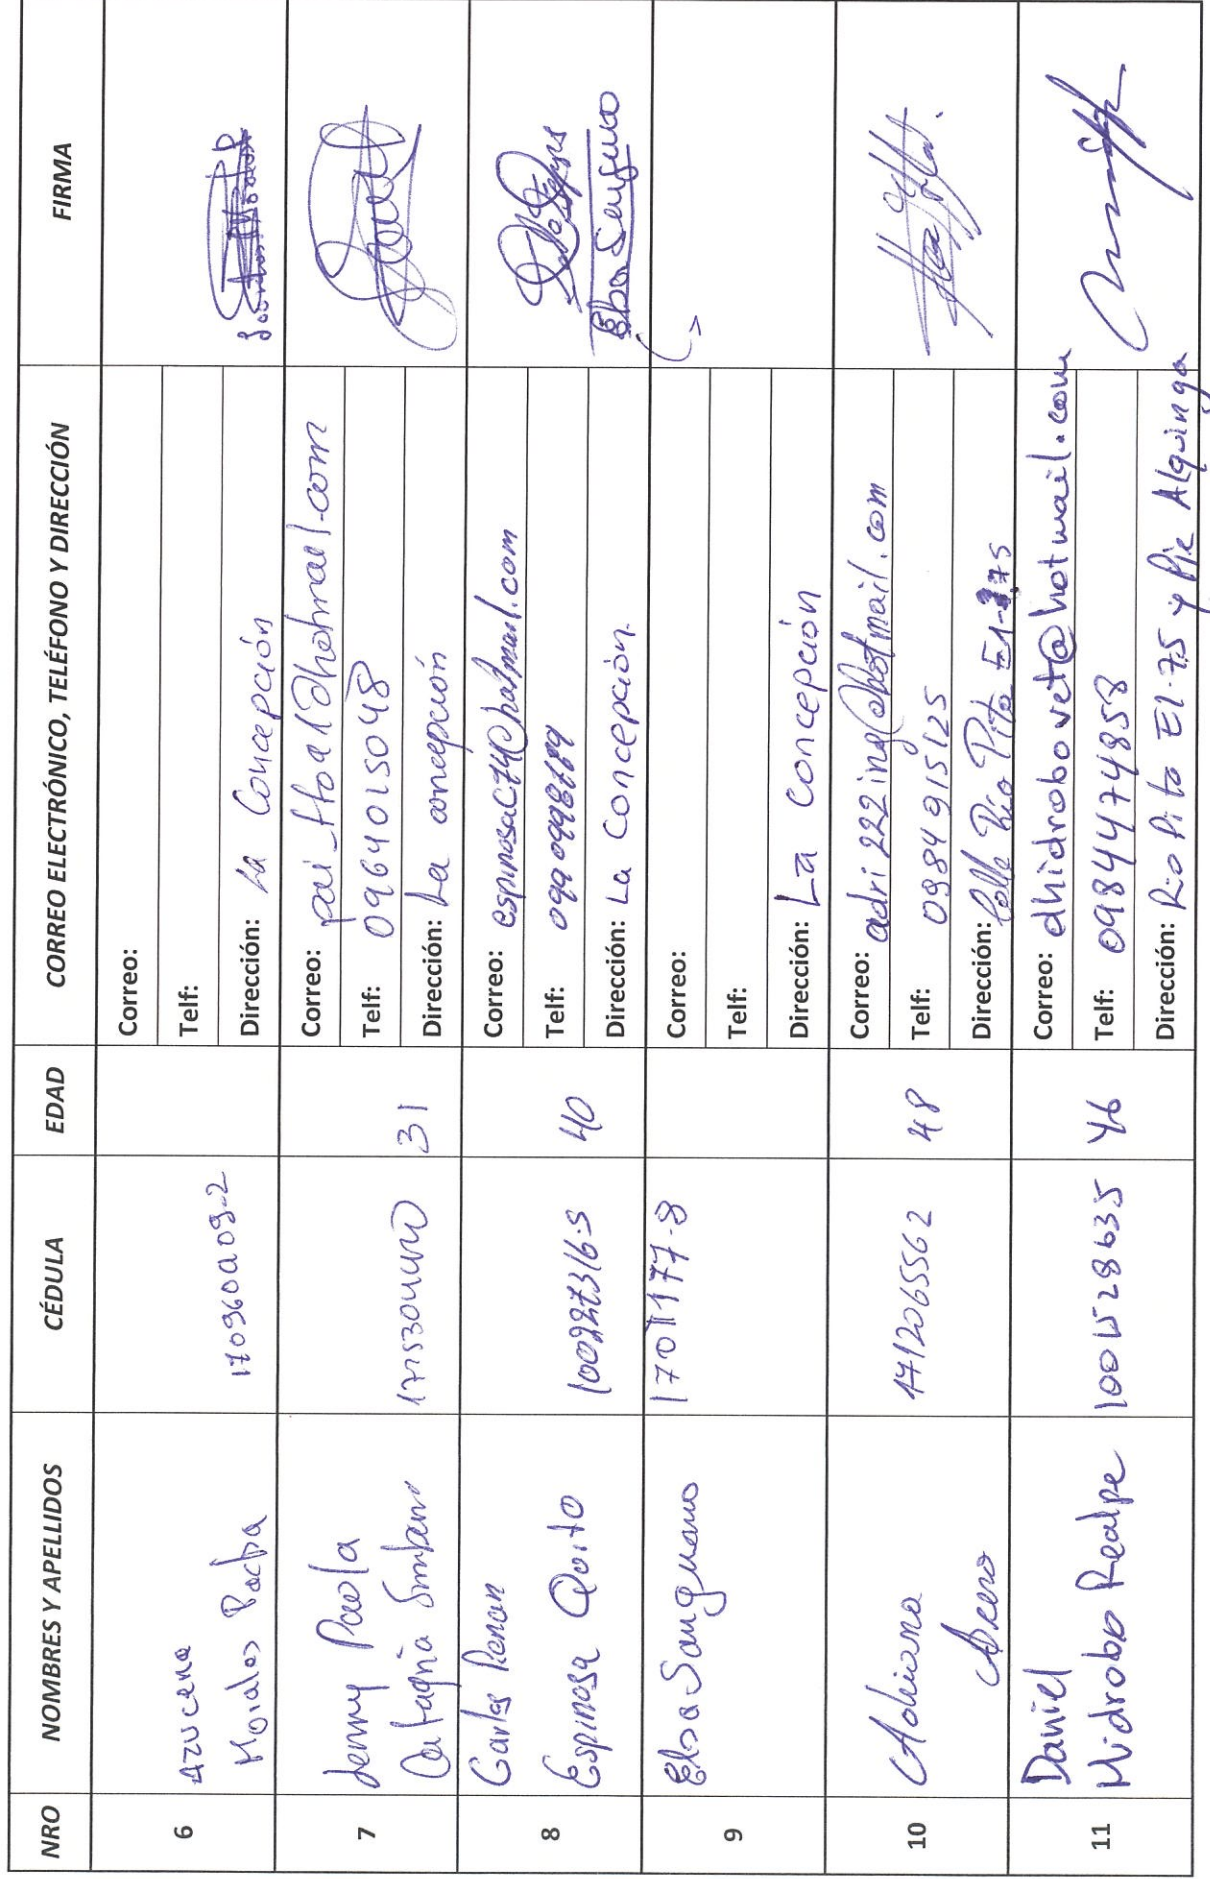 NRO NOMBRES Y APELLIDOS CÉDULA EDAD CORREO ELECTRÓNICO, TELÉFONO Y DIRECCIÓN FIRMA
6
Azucena
Morales Pacha
Correo:
Telf:
Dirección: La Concepción
7
Jenny Paola
31
Correo:
Telf: 0964015048
Dirección: La concepción
8
Carlos Renan
Espinosa Quito
100227316-5
40
Correo: espinosac74@hotmail.com
Telf:
Dirección: La Concepción.
9
Elsa Sanguano
1701177-8
Correo:
Telf:
Dirección: La Concepción
Elsa Sanguano
10
Adriana
Acero
1712065562
48
Correo: adri222ing@hotmail.com
Telf: 0984915125
Dirección: Calle Río Pita
11
Daniel
Hidrobo Realpe
1001528635
46
Correo: dhidrobovet@hotmail.com
Telf: 0984474858
Dirección: Rio Pita E1-75 y Pje Alquinga